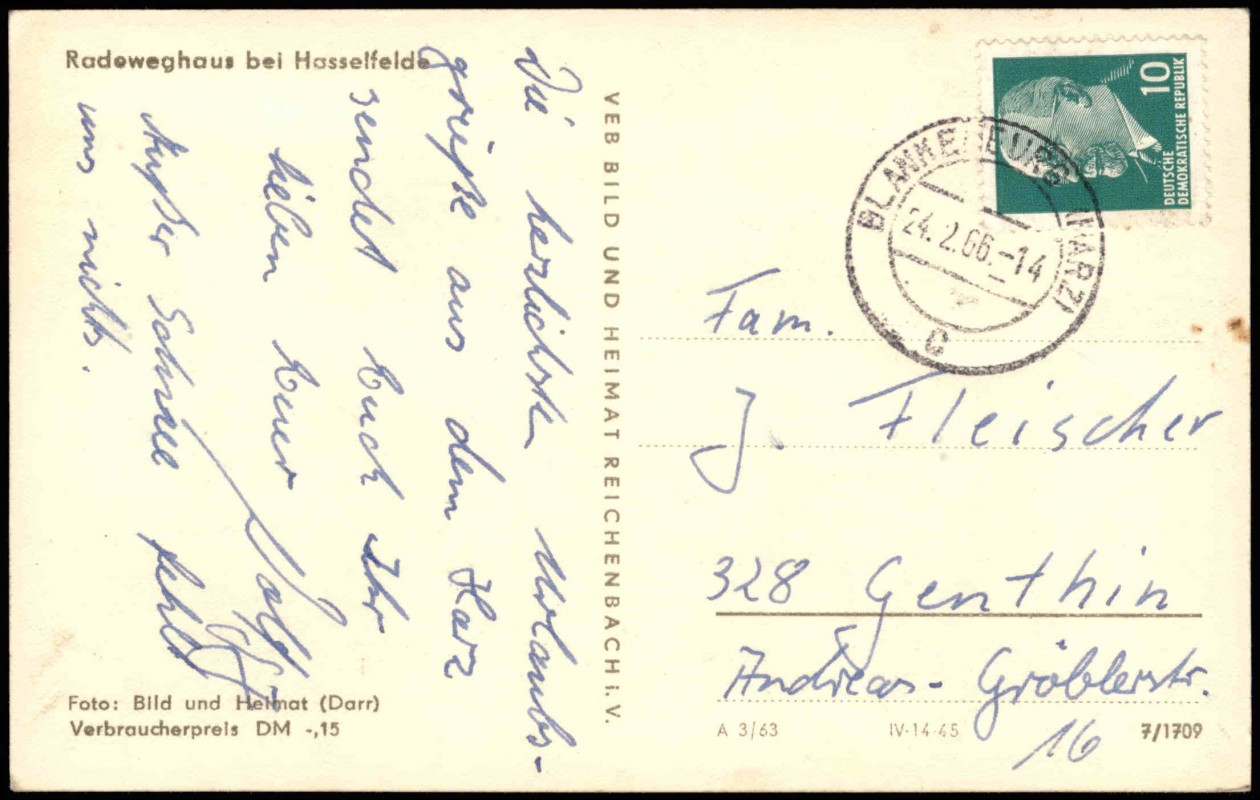 Radeweghaus bei Hasselfelde
Die herzlichsten Urlaubs-
grüße aus dem Harz
sendet Euch Ihr
lieben Euer Rolf
Außer Schnee fehlt
uns nichts.
Foto: Bild und Heimat (Darr)
Verbraucherpreis DM -,15
VEB BILD UND HEIMAT REICHENBACH i. V.
10
DEUTSCHE
DEMOKRATISCHE REPUBLIK
BLANKENBURG (HARZ)
24.2.66.-14
C
Fam.
J. Fleischer
328 Genthin
Andreas-Gröblerstr.
16
A 3/63 IV-14-45 7/1709